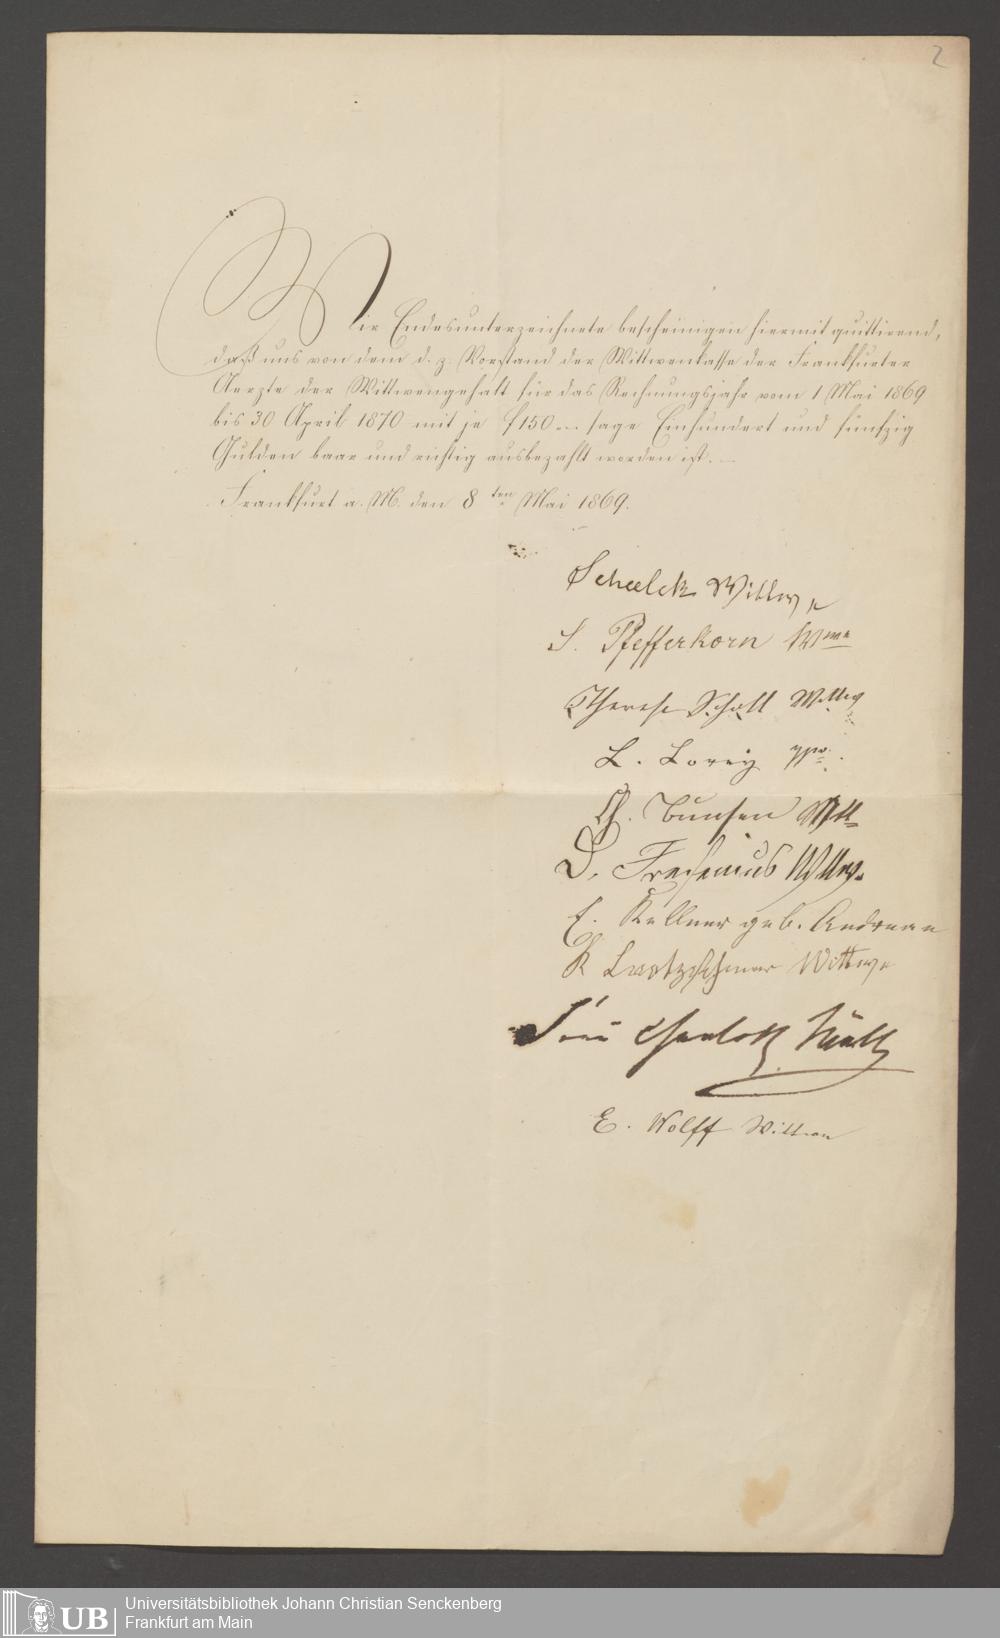 2
Wir Endesunterzeichnete bescheinigen hiermit quittirend,
daß uns von dem d. z. Vorstand der Wittwenkasse der Frankfurter
Aerzte der Wittwengehalt für das Rechnungsjahr vom 1 Mai 1869
bis 30 April 1870 mit je f 150 .-. sage Einhundert und fünfzig
Gulden baar und richtig ausbezahlt worden ist. –
Frankfurt a. M. den 8ten Mai 1869.
Scheelck Wittwe
S. Pfefferkorn Wwe
Therese Schott Wittwe
L. Lorey Ww.
Ch. Bunsen Witt
D. Fresenius Wittwe.
E. Kellner geb. Andreae
K Wittwe
Frau Charlotte
E. Wolff Wittwe
UB
Universitätsbibliothek Johann Christian Senckenberg
Frankfurt am Main